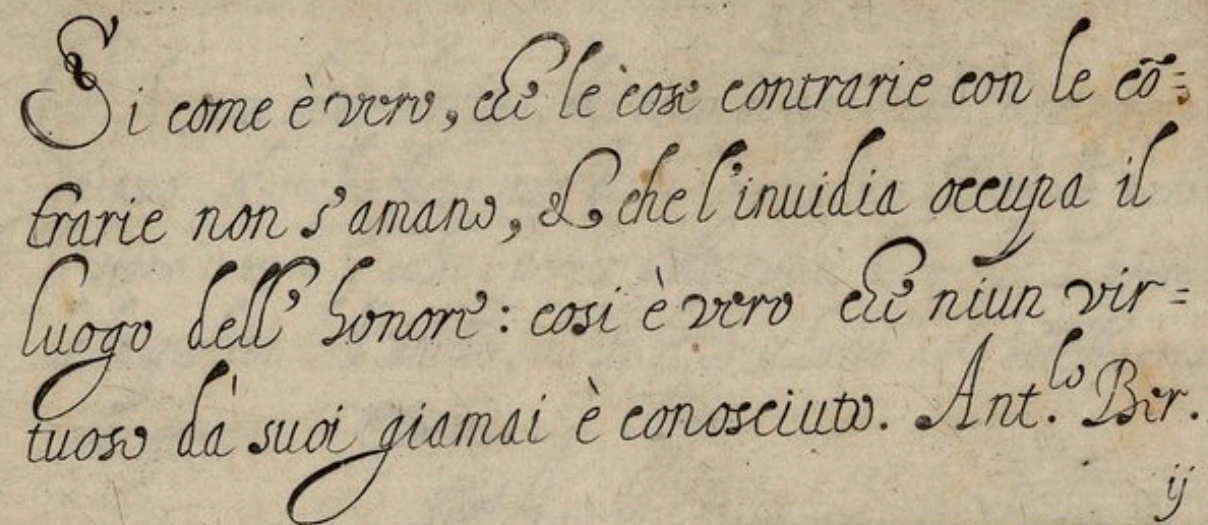 Si come è vero, che lè cose contrarie con le cō=
trarie non s'amano, & che l'inuidia occupa il
luogo dell' honore: cosi è vero che niun vir=
tuoso dà suoi giamai è conosciuto. Ant.lo Ber.
ij